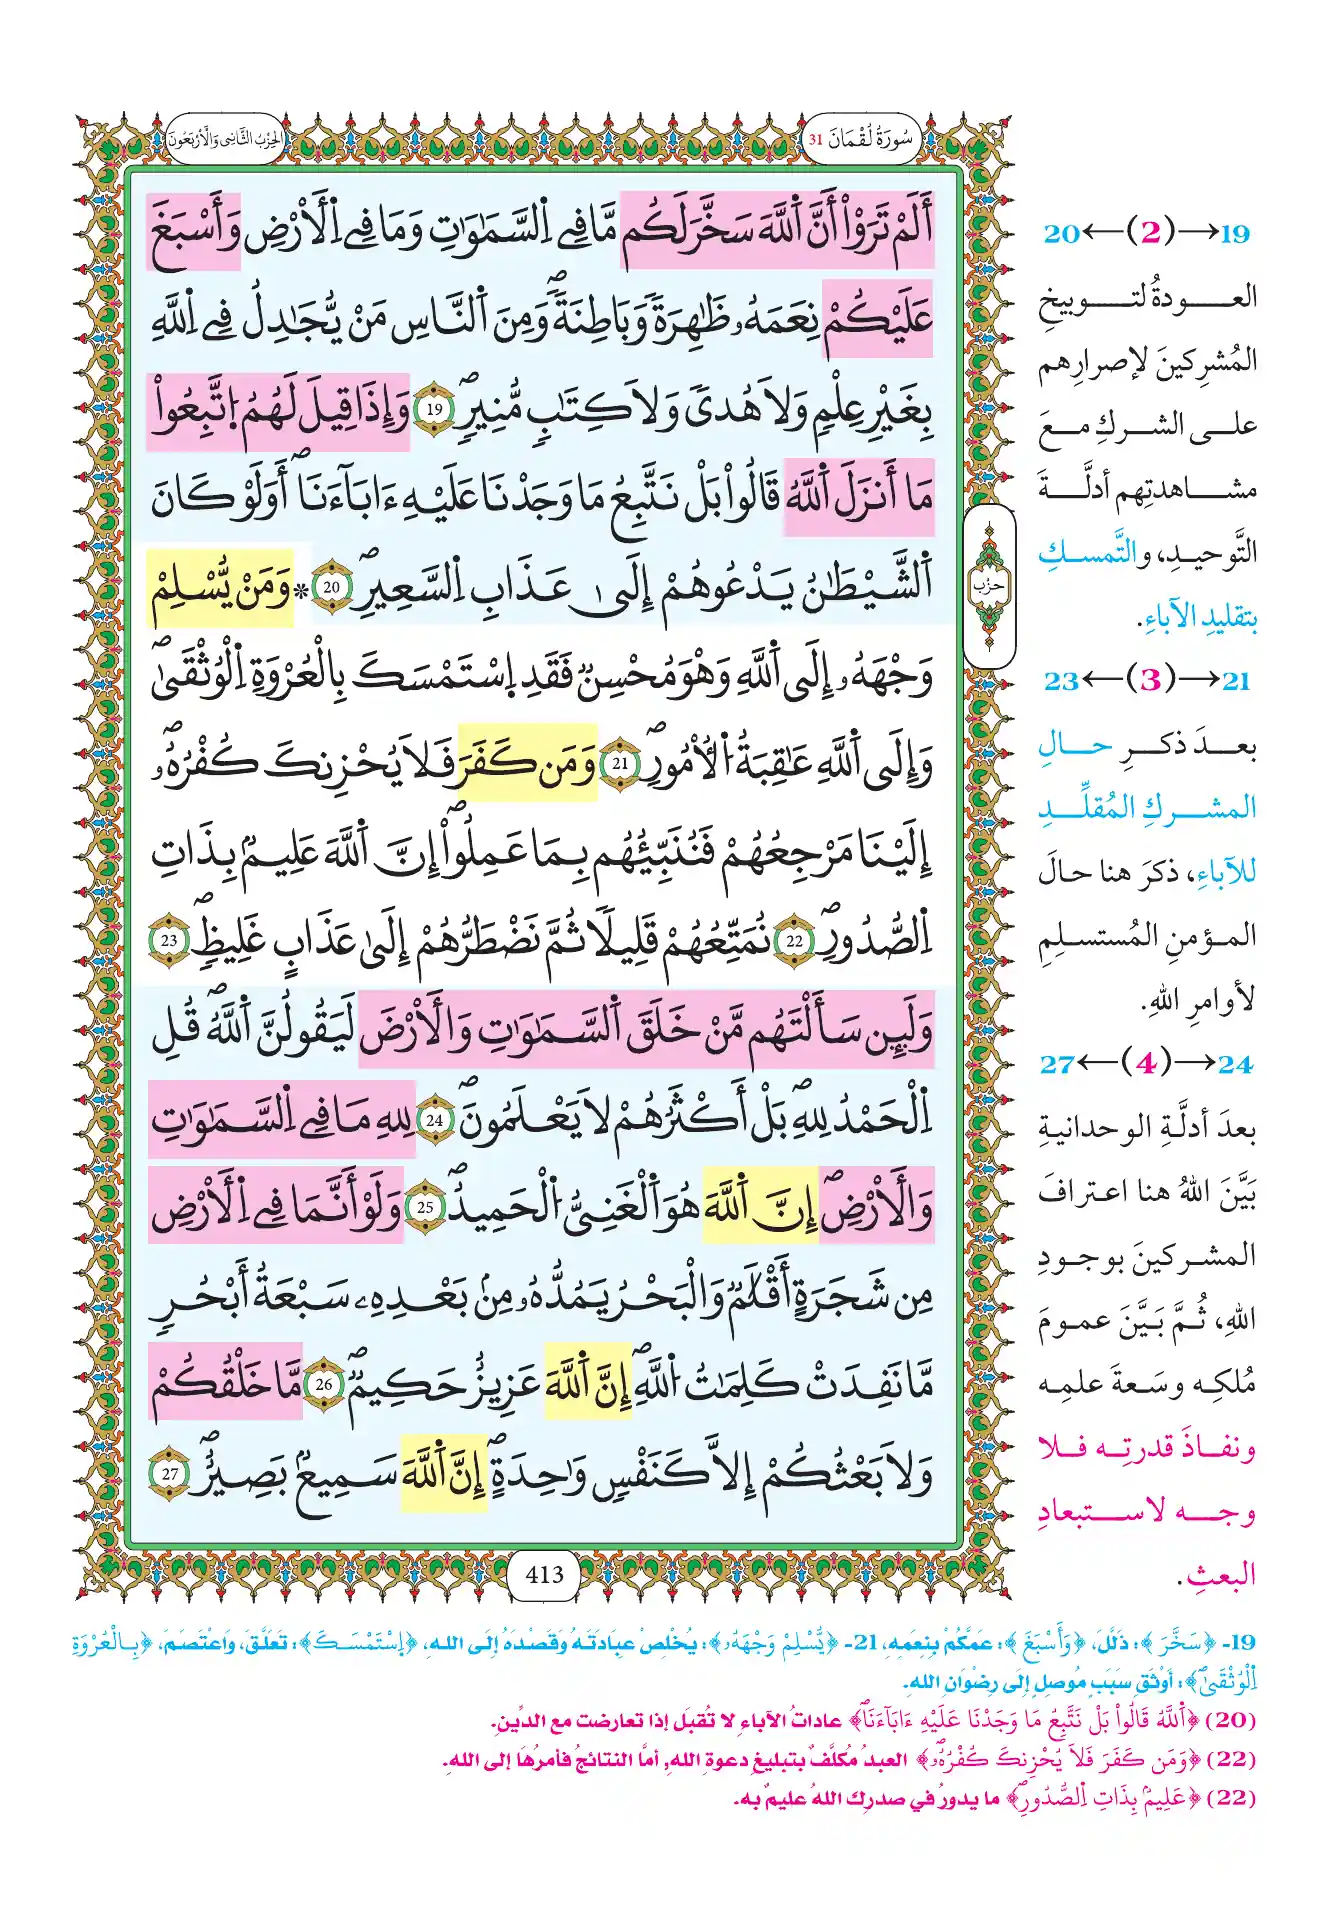 سُورَةُ لُقْمَانَ 31
الحِزْبُ الثَّانِي وَالْأَرْبَعُونَ
أَلَمْ تَرَوْاْ أَنَّ اَ۬للَّهَ سَخَّرَ لَكُم مَّا فِے اِ۬لسَّمَٰوَٰتِ وَمَا فِے اِ۬لْأَرْضِ وَأَسْبَغَ
عَلَيْكُمْ نِعَمَهُۥ ظَٰهِرَةٗ وَبَاطِنَةٗۖ وَمِنَ اَ۬لنَّاسِ مَنْ يُّجَٰدِلُ فِے اِ۬للَّهِ
بِغَيْرِ عِلْمٖ وَلَا هُديٗ وَلَا كِتَٰبٖ مُّنِيرٖۖ 19 وَإِذَا قِيلَ لَهُمُ اُ۪تَّبِعُواْ
مَا أَنزَلَ اَ۬للَّهُ قَالُواْ بَلْ نَتَّبِعُ مَا وَجَدْنَا عَلَيْهِ ءَابَآءَنَاۖ أَوَلَوْ كَانَ
اَ۬لشَّيْطَٰنُ يَدْعُوهُمْ إِلَىٰ عَذَابِ اِ۬لسَّعِيرِۖ 20 * وَمَنْ يُّسْلِمْ
وَجْهَهُۥ إِلَى اَ۬للَّهِ وَهْوَ مُحْسِنٞ فَقَدِ اِ۪سْتَمْسَكَ بِالْعُرْوَةِ اِ۬لْوُثْقَىٰۖ
وَإِلَى اَ۬للَّهِ عَٰقِبَةُ اُ۬لْأُمُورِۖ 21 وَمَن كَفَرَ فَلَا يُحْزِنكَ كُفْرُهُۥۖ
إِلَيْنَا مَرْجِعُهُمْ فَنُنَبِّئُهُم بِمَا عَمِلُواْۖ إِنَّ اَ۬للَّهَ عَلِيمُۢ بِذَاتِ
اِ۬لصُّدُورِۖ 22 نُمَتِّعُهُمْ قَلِيلٗا ثُمَّ نَضْطَرُّهُمْ إِلَىٰ عَذَابٍ غَلِيظٖۖ 23
وَلَئِن سَأَلْتَهُم مَّنْ خَلَقَ اَ۬لسَّمَٰوَٰتِ وَالْأَرْضَ لَيَقُولُنَّ اَ۬للَّهُۖ قُلِ
اِ۬لْحَمْدُ لِلهِۖ بَلْ أَكْثَرُهُمْ لَا يَعْلَمُونَۖ 24 لِلهِ مَا فِے اِ۬لسَّمَٰوَٰتِ
وَالْأَرْضِۖ إِنَّ اَ۬للَّهَ هُوَ اَ۬لْغَنِيُّ اُ۬لْحَمِيدُۖ 25 وَلَوْ أَنَّمَا فِے اِ۬لْأَرْضِ
مِن شَجَرَةٍ أَقْلَٰمٞ وَالْبَحْرُ يَمُدُّهُۥ مِنۢ بَعْدِهِۦ سَبْعَةُ أَبْحُرٖ
مَّا نَفِدَتْ كَلِمَٰتُ اُ۬للَّهِۖ إِنَّ اَ۬للَّهَ عَزِيزٌ حَكِيمٞۖ 26 مَّا خَلْقُكُمْ
وَلَا بَعْثُكُمْ إِلَّا كَنَفْسٖ وَٰحِدَةٍۖ إِنَّ اَ۬للَّهَ سَمِيعُۢ بَصِيرٌۖ 27
حزب
413
19→(2)←20
العودةُ لتوبيخِ
المُشرِكينَ لإصرارِهم
على الشركِ معَ
مشاهدتِهم أدلَّةَ
التَّوحيدِ، والتَّمسكِ
بتقليدِ الآباءِ.
21→(3)←23
بعدَ ذكرِ حالِ
المشركِ المُقلِّدِ
للآباءِ، ذكرَ هنا حالَ
المؤمنِ المُستسلِمِ
لأوامرِ اللهِ.
24→(4)←27
بعدَ أدلَّةِ الوحدانيةِ
بَيَّنَ اللهُ هنا اعترافَ
المشركينَ بوجودِ
اللهِ، ثُمَّ بَيَّنَ عمومَ
مُلكِه وسَعةَ علمِه
ونفاذَ قدرتِه فلا
وجه لاستبعادِ
البعثِ.
19- ﴿سَخَّرَ﴾: ذَلَّلَ، ﴿وَأَسْبَغَ﴾: عَمَّكُمْ بِنِعَمِهِ، 21- ﴿يُّسْلِمْ وَجْهَهُۥ﴾: يُخْلِصْ عِبَادَتَهُ وَقَصْدَهُ إِلَى اللهِ، ﴿اِ۪سْتَمْسَكَ﴾: تَعَلَّقَ، وَاعْتَصَمَ، ﴿بِالْعُرْوَةِ
اِ۬لْوُثْقَىٰۖ﴾: أَوْثَقِ سَبَبٍ مُوصِلٍ إِلَى رِضْوَانِ اللهِ.
(20) ﴿اَ۬للَّهُ قَالُواْ بَلْ نَتَّبِعُ مَا وَجَدْنَا عَلَيْهِ ءَابَآءَنَاۖ﴾ عاداتُ الآباءِ لا تُقبَل إذا تعارضت مع الدِّينِ.
(22) ﴿وَمَن كَفَرَ فَلَا يُحْزِنكَ كُفْرُهُۥۖ﴾ العبدُ مُكلَّفٌ بتبليغِ دعوةِ اللهِ، أمَّا النتائجُ فأمرُها إلى اللهِ.
(22) ﴿عَلِيمُۢ بِذَاتِ اِ۬لصُّدُورِۖ﴾ ما يدورُ في صدرِك اللهُ عليمٌ به.